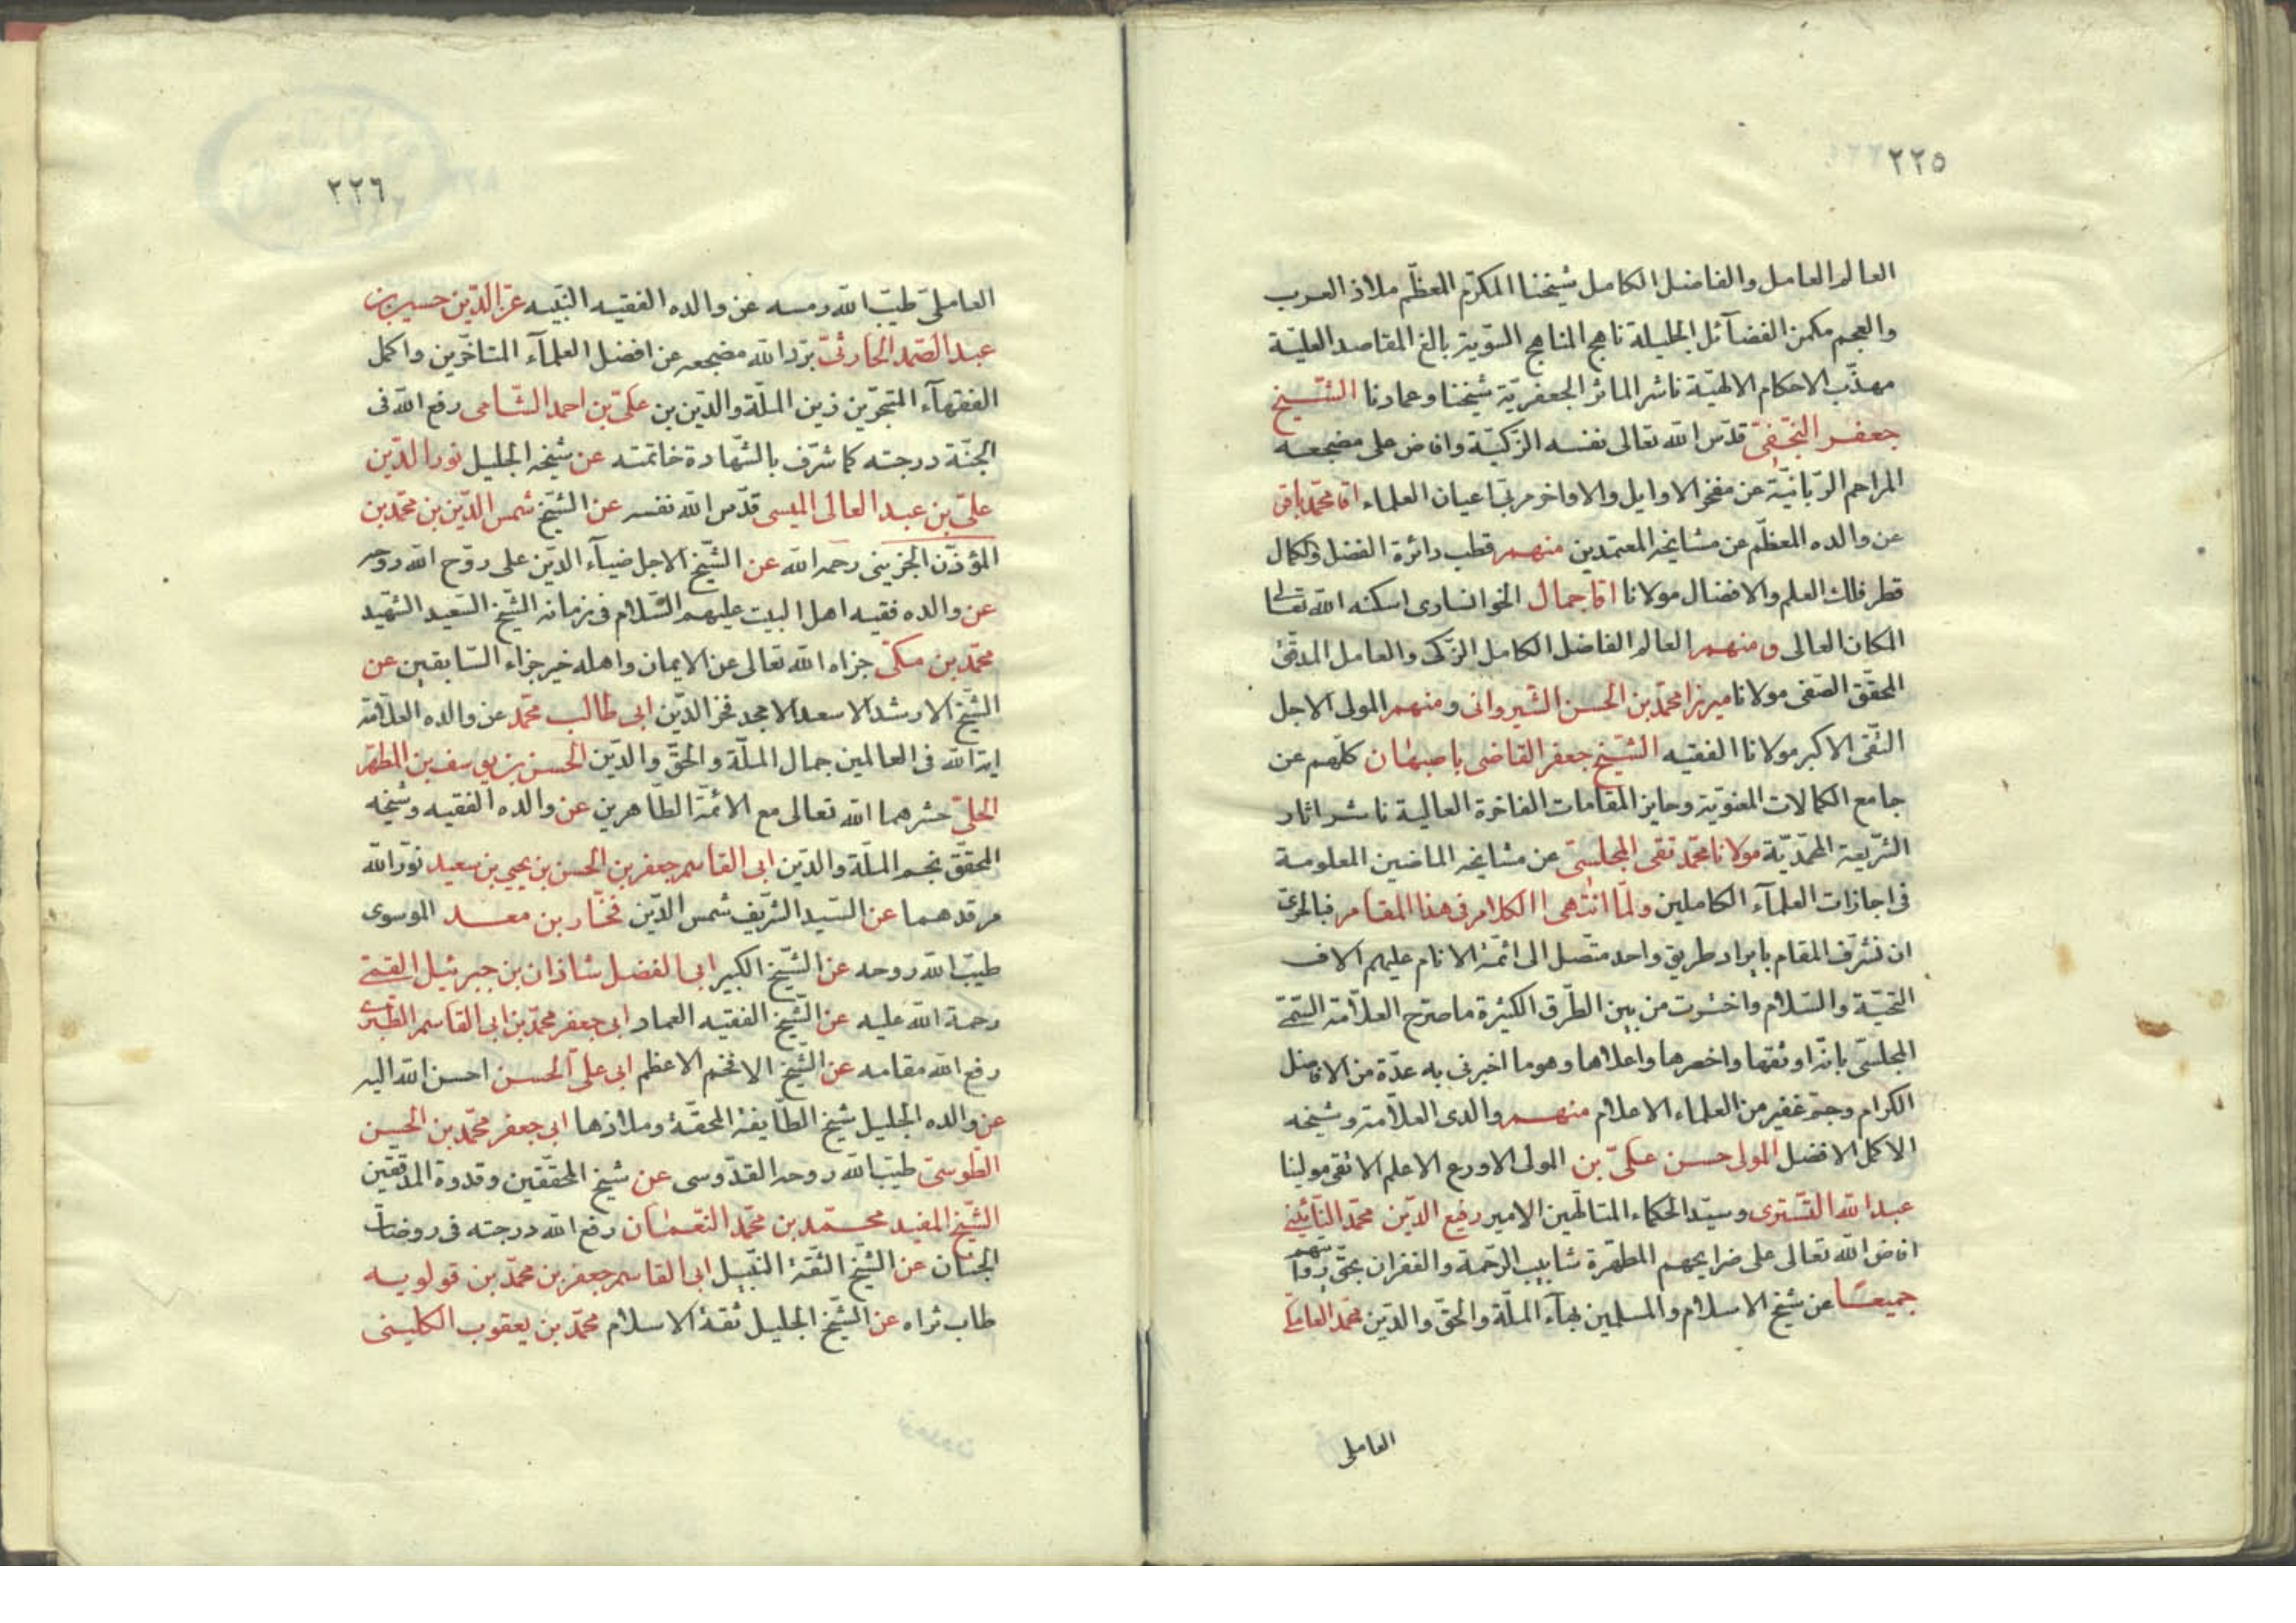 ٢٢٥
العالم العامل والفاضل الكامل شيخنا المكرّم المعظّم ملاذ العرب
والعجم مكمن الفضآئل الجليلة ناهج المناهج السّويّة بالغ المقاصد العليّة
مهذّب الاحكام الالهيّة ناشر الماثر الجعفريّة شيخنا وعمادنا الشّيخ
جعفر النّجفىّ قدّس اللّه تعالى نفسه الزّكيّة وافاض على مضجعه
المراحم الرّبانيّة عن مفخر الاوايل والاواخر مربّى اعيان العلماء اقا محمّد باقر
عن والده المعظّم عن مشايخه المعتمدين منهم قطب دائرة الفضل والكمال
قطر فلك العلم والافضال مولانا اقا جمال الخوانسارى اسكنه اللّه تعالى
المكان العالى ومنهم العالم الفاضل الكامل الزّكى والعامل المدقّق
المحقّق الصّفى مولانا ميرزا محمّد بن الحسن الشّيروانى ومنهم المولى الاجل
التّقى الاكبر مولانا الفقيه الشّيخ جعفر القاضى باصبهان كلّهم عن
جامع الكمالات المعنويّة وحايز المقامات الفاخرة العالية ناشر اثار
الشّريعة المحمّديّة مولانا محمّد تقى المجلسىّ عن مشايخه الماضين المعلومة
فى اجازات العلمآء الكاملين ولمّا انتهى الكلام فى هذا المقام فبالحرىّ
ان نشرّف المقام بايراد طريق واحد متّصل الى ائمّة الانام عليهم الاف
التّحيّة والسّلام واخترت من بين الطّرق الكثيرة ما صرّح العلّامة التّقىّ
المجلسىّ بانّه اوثقها واخصرها واعلاها وهو ما اخبرنى به عدّة من الافاضل
الكرام وجمّ غفير من العلماء الاعلام منهم والدى العلّامة وشيخه
الاكمل الافضل المولى حسن علىّ بن المولى الاورع الاعلم الاتقى مولينا
عبد اللّه التّسترى وسيّد الحكماء المتالّهين الامير رفيع الدّين محمّد النّائينى
افاض اللّه تعالى على ضرايحهم المطهّرة شابيب الرّحمة والغفران بحقّ
جميعًا عن شيخ الاسلام والمسلمين بهآء الملّة والحقّ والدّين محمّد العاملىّ
العاملى
٢٢٦
العاملىّ طيّب اللّه رمسه عن والده الفقيه النّبيه عزّ الدّين حسين بن
عبد الصّمد الحارثىّ برّد اللّه مضجعه عن افضل العلمآء المتاخّرين واكمل
الفقهآء المتبحّرين زين الملّة والدّين بن علىّ بن احمد الشّامى رفع اللّه فى
الجنّة درجته كما شرّف بالشّهادة خاتمته عن شيخه الجليل نور الدّين
علىّ بن عبد العالى الميسى قدّس اللّه نفسه عن الشّيخ شمس الدّين بن محمّد بن
المؤذّن الجزينى رحمه اللّه عن الشّيخ الاجل ضيآء الدّين على روّح اللّه روحه
عن والده فقيه اهل البيت عليهم السّلام فى زمانه الشّيخ السّعيد الشّهيد
محمّد بن مكّى جزاه اللّه تعالى عن الايمان واهله خير جزاء السّابقين عن
الشّيخ الارشد الاسعد الامجد فخر الدّين ابى طالب محمّد عن والده العلّامة
اية اللّه فى العالمين جمال الملّة والحقّ والدّين الحسن بن يوسف بن المطهّر
الحلّىّ حشرهما اللّه تعالى مع الائمّة الطّاهرين عن والده الفقيه وشيخه
المحقّق نجم الملّة والدّين ابى القاسم جعفر بن الحسن بن يحيى بن سعيد نوّر اللّه
مرقدهما عن السّيد الشّريف شمس الدّين فخّار بن معد الموسوى
طيّب اللّه روحه عن الشّيخ الكبير ابى الفضل شاذان بن جبرئيل القمّى
رحمة اللّه عليه عن الشّيخ الفقيه العماد ابى جعفر محمّد بن ابى القاسم الطّبرى
رفع اللّه مقامه عن الشّيخ الافخم الاعظم ابى علىّ الحسن احسن اللّه اليه
عن والده الجليل شيخ الطّايفة المحقّة وملاذها ابى جعفر محمّد بن الحسن
الطّوسىّ طيّب اللّه روحه القدّوسى عن شيخ المحقّقين وقدوة المدقّقين
الشّيخ المفيد محمّد بن محمّد النّعمان رفع اللّه درجته فى روضات
الجنان عن الشّيخ الثّقة النّبيل ابى القاسم جعفر بن محمّد بن قولويه
طاب ثراه عن الشّيخ الجليل ثقة الاسلام محمّد بن يعقوب الكلينى